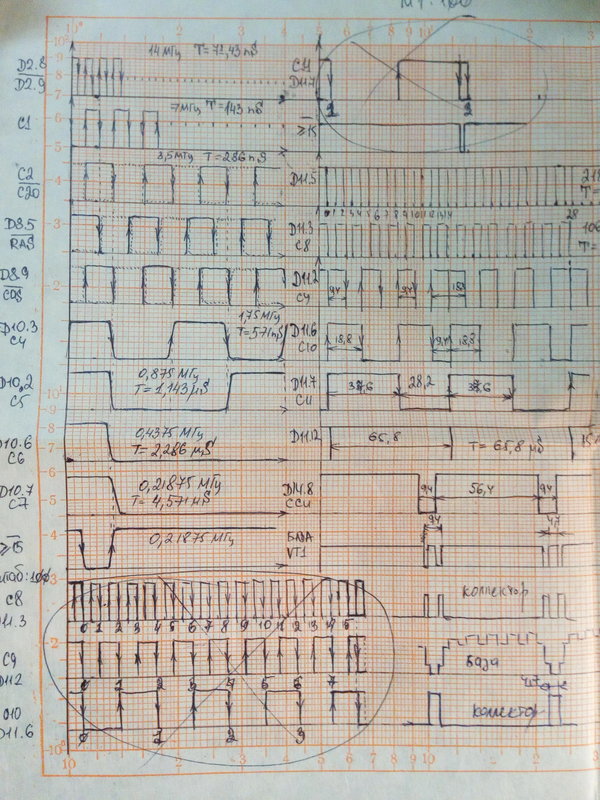 МГ. 100
D2.8
D2.9
14 МГц T = 71,43 nS
C11
D11.7
1
2
C1
7 МГц T = 143 nS
≥15
3,5 МГц T = 286 nS
C2
C20
D11.5
0 1 2 3 4 5 6 7 8 9 10 11 12 13 14
28
D8.5
RAS
D11.3
C8
D8.9
CAS
D11.2
C9
9,4
9,4
18,8
D10.3
C4
1,75 МГц
T = 571 nS
D11.6
C10
18,8
9,4
18,8
D10.2
C5
0,875 МГц
T = 1,143 μS
D11.7
C11
37,6
28,2
37,6
D10.6
C6
0,4375 МГц
T = 2,286 μS
D11.12
65,8
T = 65,8 μS
D10.7
C7
0,21875 МГц
T = 4,571 μS
D14.8
ССИ
9,4
56,4
9,4
≥15
0,21875 МГц
БАЗА
VT1
9,4
4,7
C8
11.3
0 1 2 3 4 5 6 7 8 9 10 11 12 13 14 15
коллектор
C9
D11.2
0 1 2 3 4 5 6 7
База
4,7
C10
D11.6
0 1 2 3
Коллектор
10
2
3
10
2